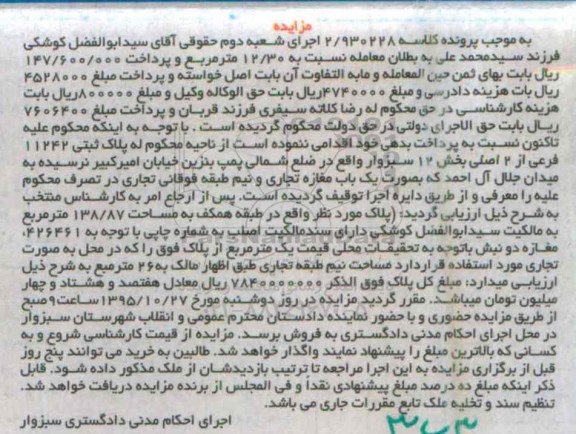 مزایده
به موجب پرونده کلاسه ۲/۹۳۰۲۲۸ اجرای شعبه دوم حقوقی آقای سیدابوالفضل کوشکی
فرزند سیدمحمد علی به بطلان معامله نسبت به ۱۲/۳۰ مترمربع و پرداخت ۱۴۷/۶۰۰/۰۰۰
ریال بابت بهای ثمن حین المعامله و مابه التفاوت آن بابت اصل خواسته و پرداخت مبلغ ۴۵۲۸۰۰۰
ریال بات هزینه دادرسی و مبلغ ۴۷۴۰۰۰۰ریال بابت حق الوکاله وکیل و مبلغ ۸۰۰۰۰۰ریال بابت
هزینه کارشناسی در حق محکوم له رضا کلاته سیفری فرزند قربان و پرداخت مبلغ ۷۶۰۶۴۰۰
ریال بابت حق الاجرای دولتی در حق دولت محکوم گردیده است . با توجه به اینکه محکوم علیه
تاکنون نسبت به پرداخت بدهی خود اقدامی ننموده است از ناحیه محکوم له پلاک ثبتی ۱۱۲۴۲
فرعی از ۲ اصلی بخش ۱۲ سبزوار واقع در ضلع شمالی پمپ بنزین خیابان امیرکبیر نرسیده به
میدان جلال آل احمد که بصورت یک باب مغازه تجاری و نیم طبقه فوقانی تجاری در تصرف محکوم
علیه را معرفی و از طریق دایره اجرا توقیف گردیده است. پس از ارجاع امر به کارشناس منتخب
به شرح ذیل ارزیابی گردید: (پلاک مورد نظر واقع در طبقه همکف به مساحت ۱۳۸/۸۷ مترمربع
به مالکیت سیدابوالفضل کوشکی دارای سندمالکیت اصلب به شماره چاپی با توجه به ۰۴۲۶۴۶۱
مغازه دو نبش باتوجه به تحقیقات محلی قیمت یک مترمربع از پلاک فوق را که در محل به صورت
تجاری مورد استفاده قراردارد مساحت نیم طبقه تجاری طبق اظهار مالک به۲۶ مترمیع به شرح ذیل
ارزیابی میدارد: مبلغ کل پلاک فوق الذکر ۷۸۴۰۰۰۰۰۰۰ ریال معادل هفتصد و هشتاد و چهار
میلیون تومان میباشد. مقرر گردید مزایده در روز دوشنبه مورخ ۱۳۹۵/۱۰/۲۷ ساعت۹صبح
از طریق مزایده حضوری و با حضور نماینده دادستان محترم عمومی و انقلاب شهرستان سبزوار
در محل اجرای احکام مدنی دادگستری به فروش برسد. مزایده از قیمت کارشناسی شروع و به
کسانی که بالاترین مبلغ را پیشنهاد نمایند واگذار خواهد شد. طالبین به خرید می توانند پنج روز
قبل از برگزاری مزایده به این اجرا مراجعه تا ترتیب بازدیدشان از ملک مذکور داده شود. قابل
ذکر اینکه مبلغ ده درصد مبلغ پیشنهادی نقدا و فی المجلس از برنده مزایده دریافت خواهد شد.
تنظیم سند و تخلیه ملک تابع مقررات جاری می باشد.
اجرای احکام مدنی دادگستری سبزوار